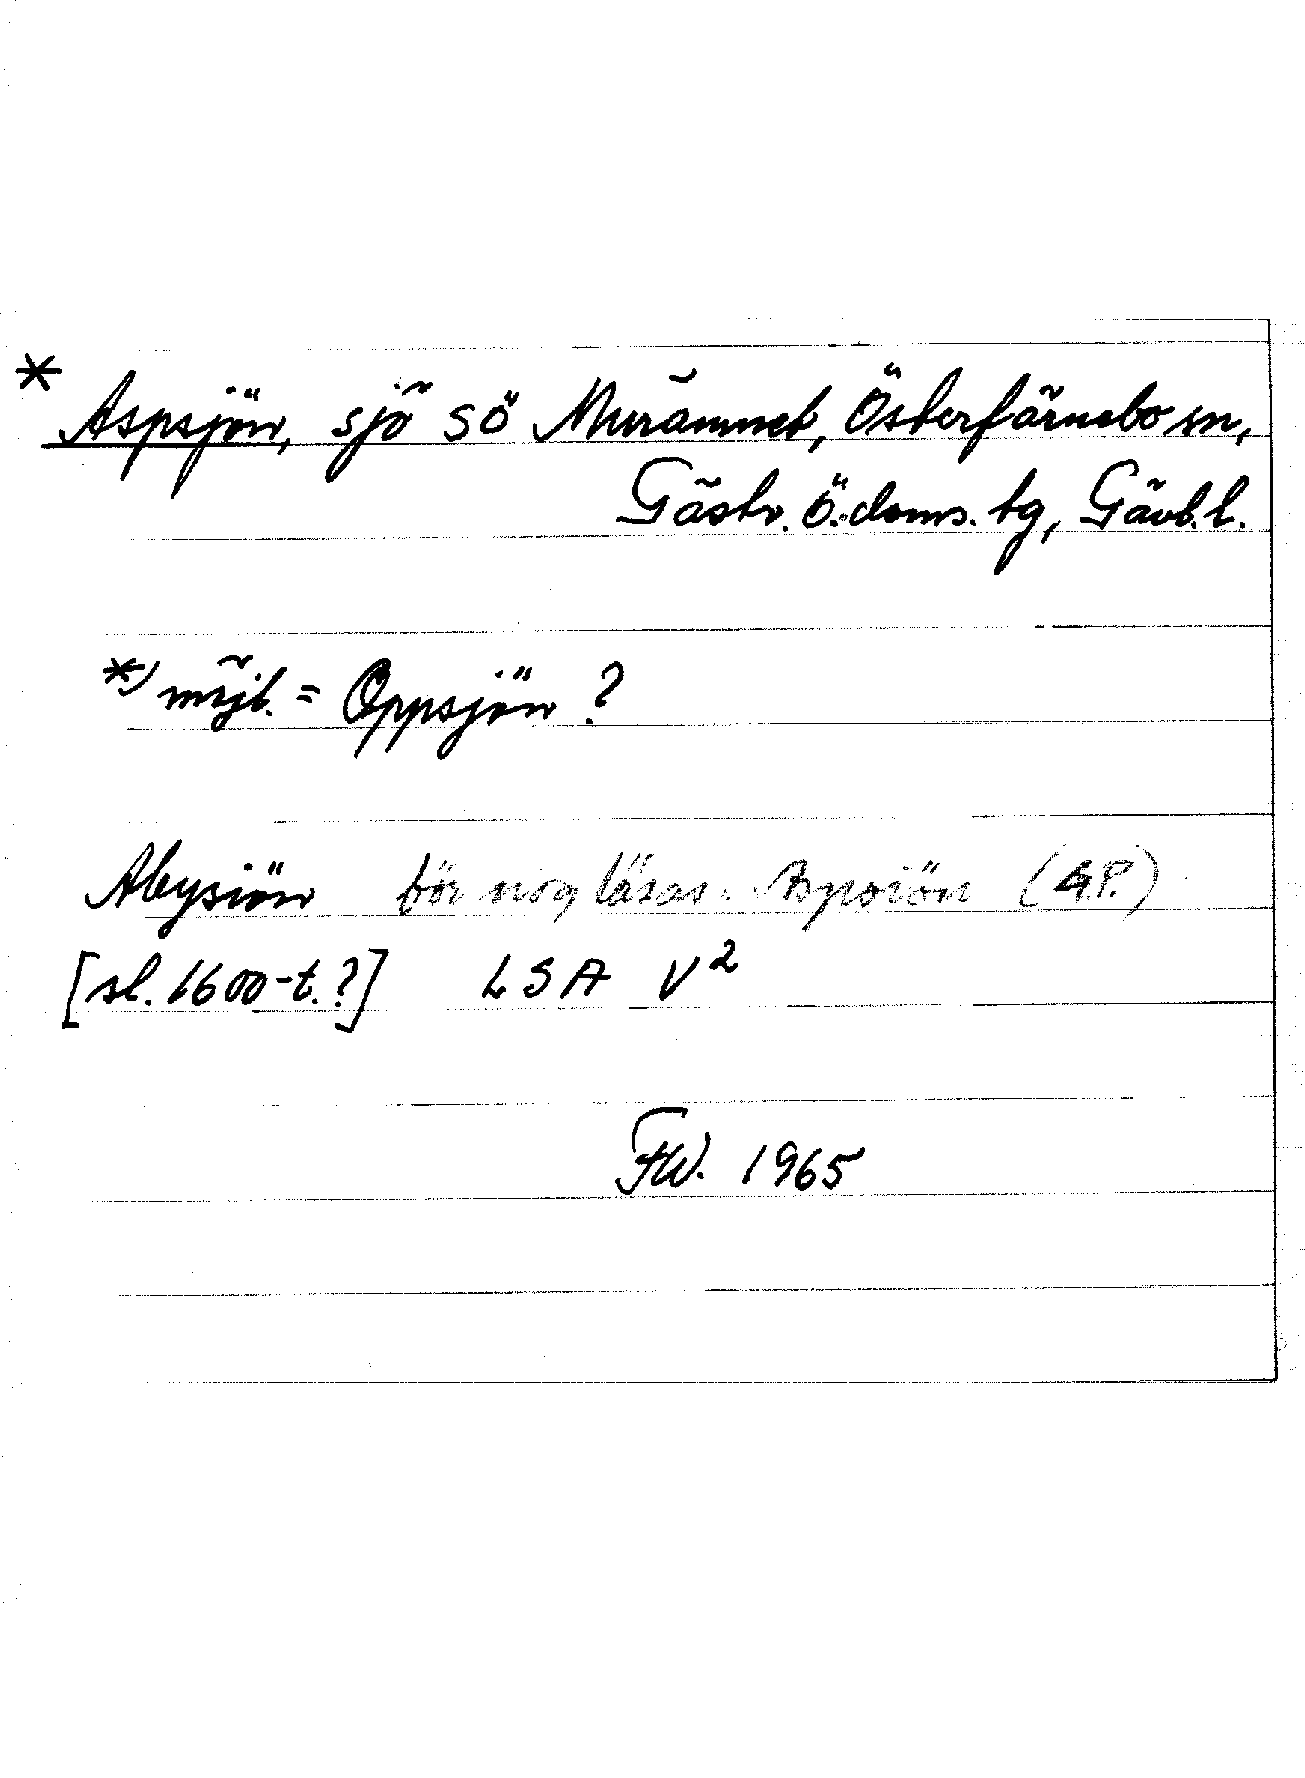 * Aspsjön, sjö SÖ Murämnet, Österfärnebo sn,
Gästr. ö. doms. tg, Gävb. l.
*) möjl. = Oppsjön ?
Abysiön bör nog läsas: Aspsiön (G.P.)
[sl. 1600-t.?] LSA V²
FW. 1965